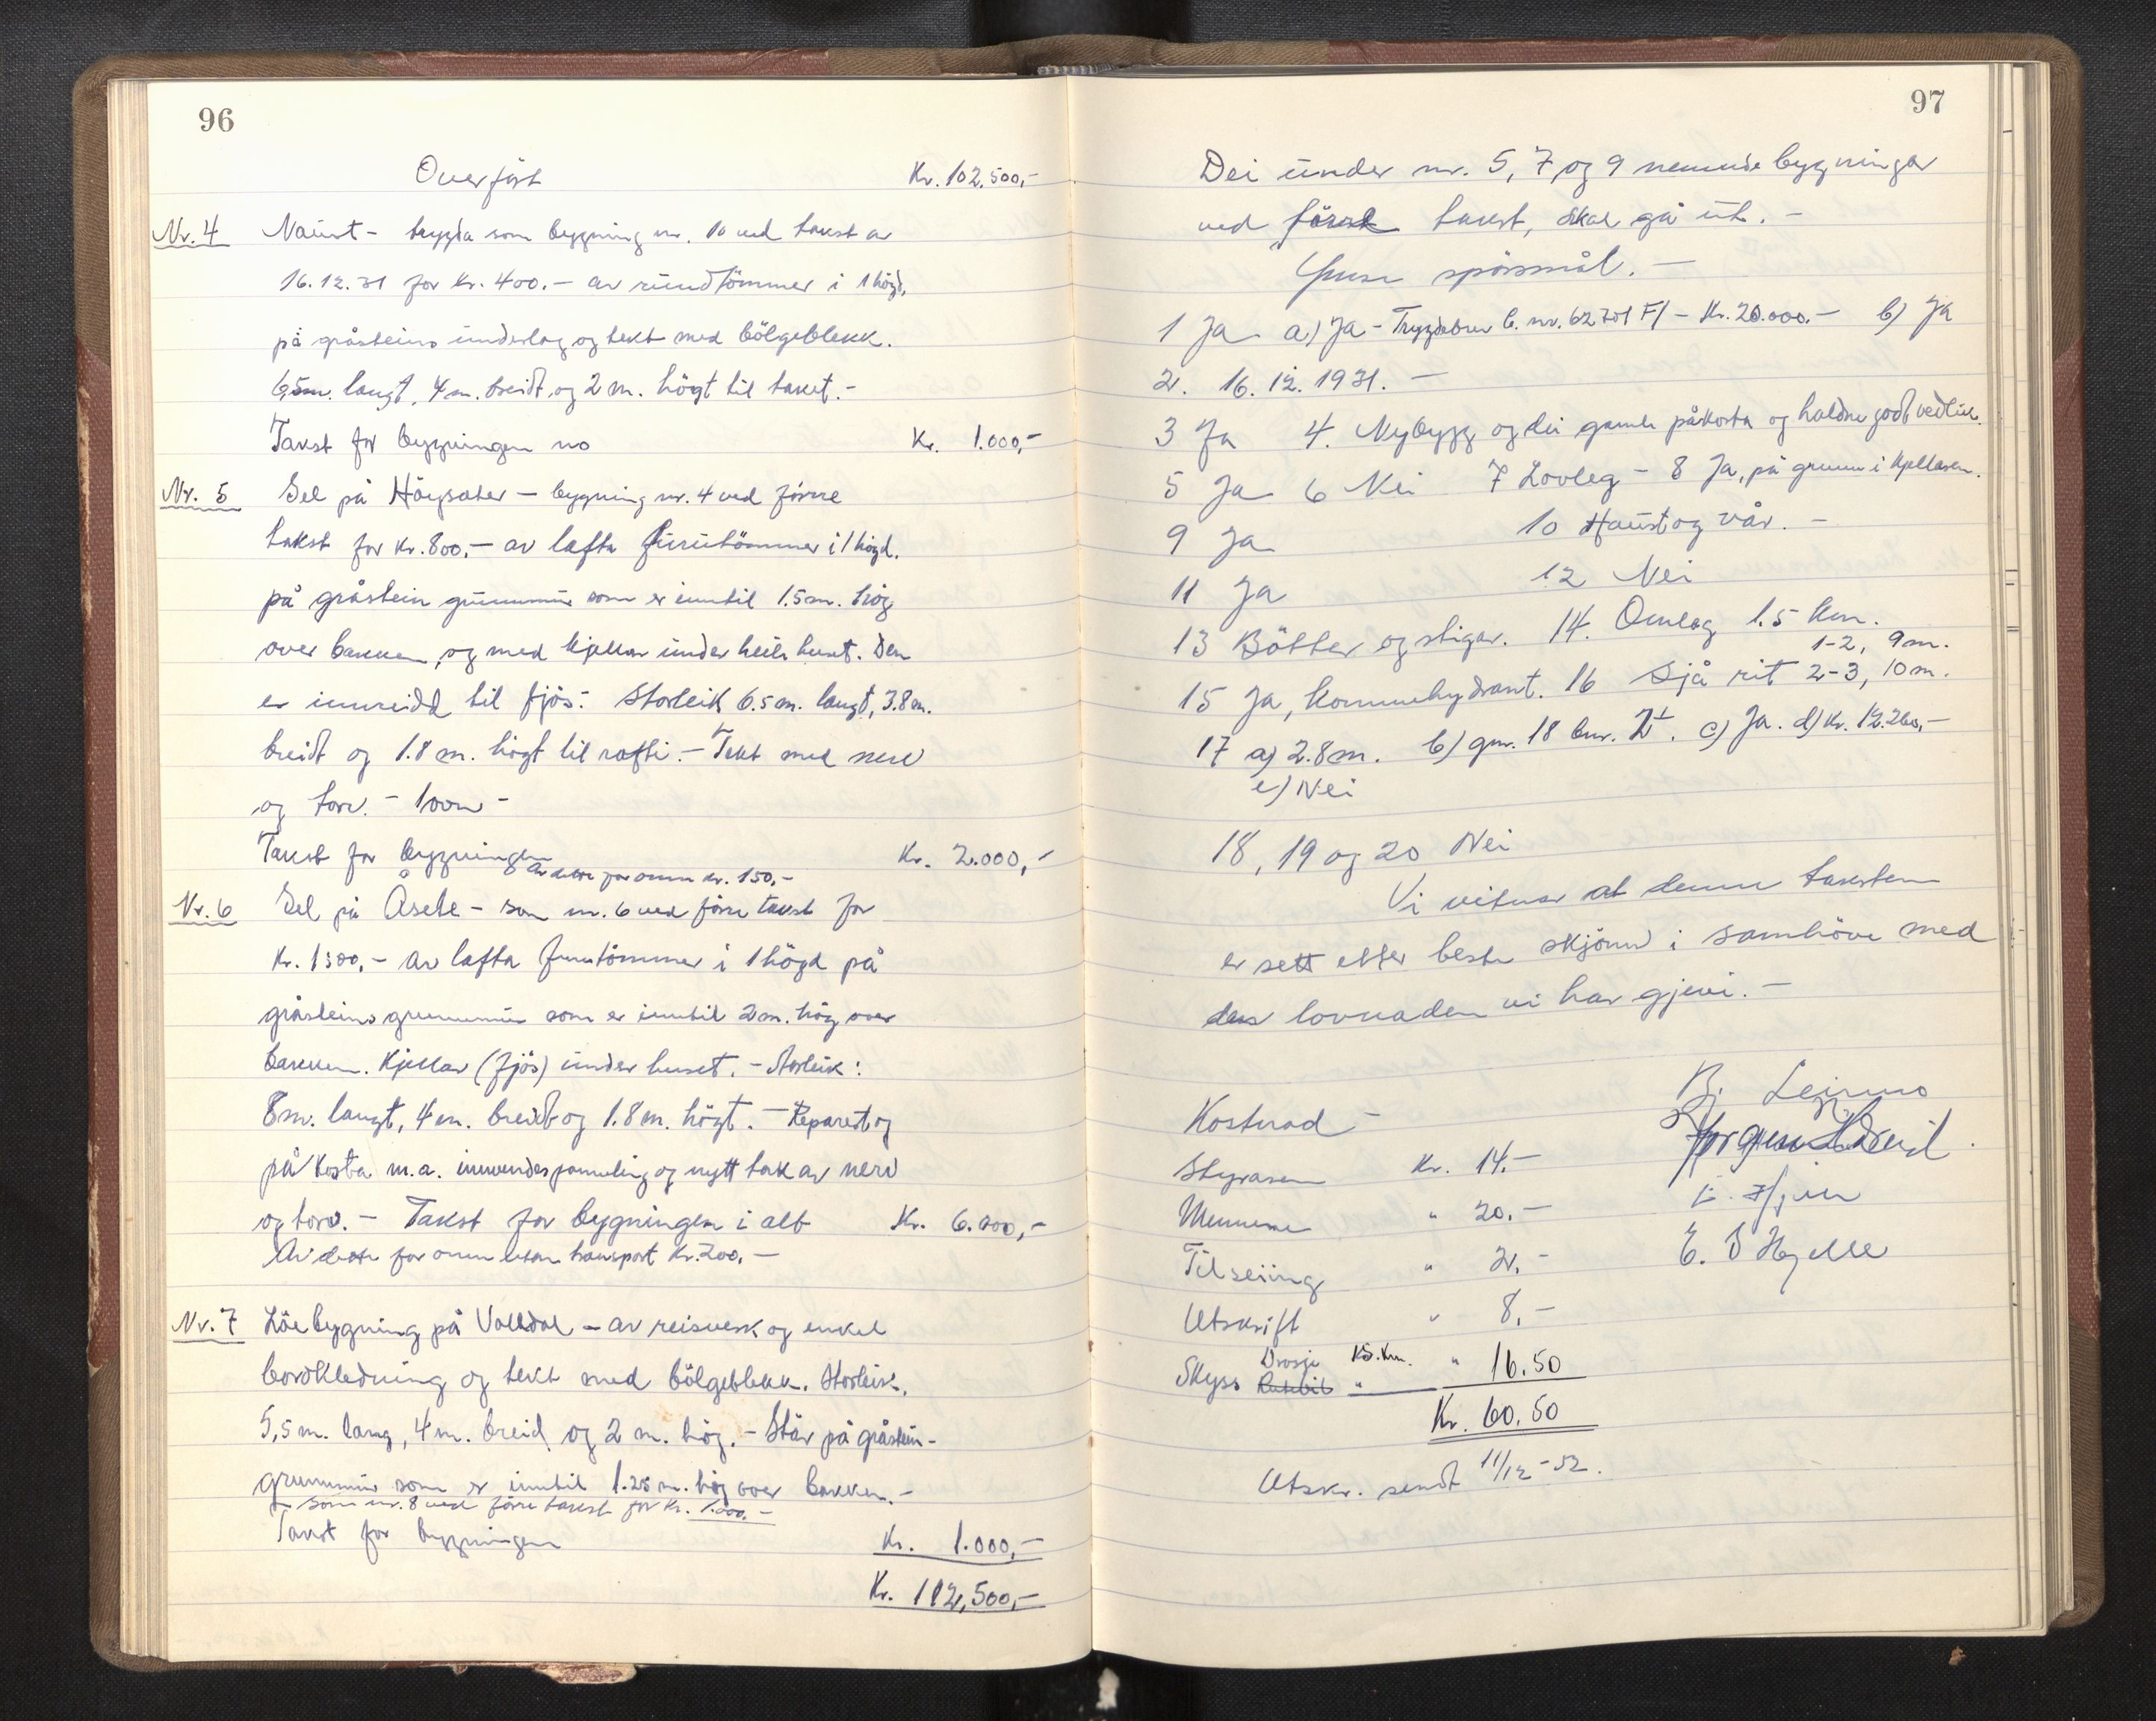 96
Overført Kr. 102.500,-
Nr. 4 Naust - trygda som bygning nr. 10 ved takst av
16.12.31 for kr. 400.- av rundtömmer i 1 högd,
på gråsteins underlag og tekt med bölgeblekk.
6,5m. langt, 4 m. breidt og 2 m. högt til taket.-
Takst for bygningen no Kr. 1.000,-
Nr. 5 Sel på Höysæter - bygning nr. 4 ved förre
takst for kr. 800,- av lafta furutömmer i 1 högd.
på gråstein grunnmur som er inntil 1.5 m. hög
over bakken, og med kjellar under heile huset. Den
er innreidd til fjös: Storleik 6.5 m. langt, 3.8 m.
breidt og 1.8 m. högt til rafti. - Tekt med never
og torv. - 1 omn -
Takst for bygningen Kr. 2.000,-
Av dette for omn kr. 150,-
Nr. 6 Sel på Åsete - som nr. 6 ved förre takst for
Kr. 1500,- av lafta furutömmer i 1 högd på
gråsteins grunnmur som er inntil 2 m. hög over
bakken. Kjellar (fjös) under huset. - Storleik:
8 m. langt, 4 m. breidt og 1.8 m. högt. - Reparert og
påkosta m.a. innvendes panneling og nytt tak av never
og torv. - Takst for bygningen i alt Kr. 6.000,-
Av dette for omn utan transport Kr. 200,-
Nr. 7 Löebygning på Valldal - av reisverk og enkel
bordkledning og tekt med bölgeblekk. Storleik,
5,5 m. lang, 4 m. breid og 2 m. hög. - Står på gråstein-
grunnmur som er inntil 1.25 m. hög over bakken.-
som nr. 8 ved förre takst for kr. 1.000.-
Takst for bygningen Kr. 1.000,-
Kr. 112,500,-
97
Dei under nr. 5, 7 og 9 nemnde bygningar
ved förre takst, skal gå ut. -
Ymse spörsmål. -
1 Ja a) Ja - Trygdebrev b. nr. 62701 F1 - Kr. 20.000.- b) Ja
2. 16.12.1931. -
3 Ja 4. Nybygg og dei gamle påkosta og haldne godt vedlike.
5 Ja 6 Nei 7 Lovleg - 8 Ja, på grunn i kjellaren.
9 Ja 10 Haust og vår. -
11 Ja 12 Nei
13 Bötter og stigar. 14. Omlag 1.5 km.
15 Ja, Kommuehydrant. 16 Sjå rit 1-2, 9 m.
2-3, 10 m.
17 a) 2.8 m. b) gnr. 18 bnr. 2 c) Ja. d) Kr. 12.200,-
e) Nei
18, 19 og 20 Nei
Vi vitnar at denne taksten
er sett etter beste skjönn i samhöve med
den lovnaden vi har gjevi. -
B. Leirmo
E. S Hjelle
Kostnad -
Styraren Kr. 14.-
Mennene " 20.-
Tilseiing " 2.-
Utskrift " 8,-
Skyss Drosje km. " 16.50
Rutebil "
Kr. 60.50
Utskr. sendt 11/12-52.